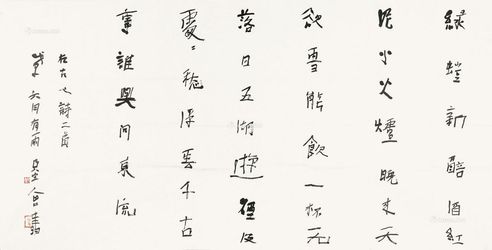 綠螘新醅酒紅
泥小火爐晚来天
欲雪能飲一杯无
落日五湖遊煙波
處〻愁浮沉千古
事誰與問東流
右古人詩二首